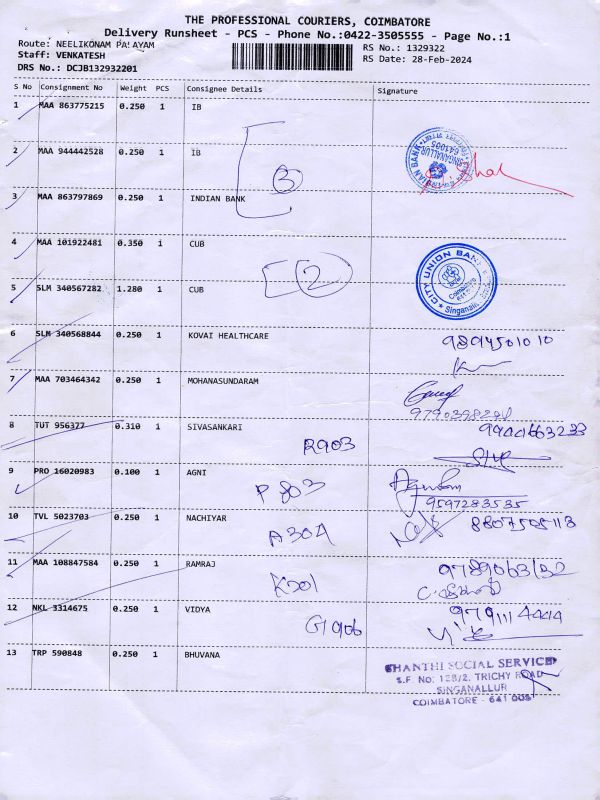 THE PROFESSIONAL COURIERS, COIMBATORE
Delivery Runsheet - PCS - Phone No.:0422-3505555 - Page No.:1
Route: NEELIKONAM PALAYAM RS No.: 1329322
Staff: VENKATESH RS Date: 28-Feb-2024
DRS No.: DCJB132932201
S No Consignment No Weight PCS Consignee Details Signature
1 MAA 863775215 0.250 1 IB
2 MAA 944442528 0.250 1 IB
3
3 MAA 863797869 0.250 1 INDIAN BANK
4 MAA 101922481 0.350 1 CUB
2
CITY UNION BANK
Singanallur
5 SLM 340567282 1.280 1 CUB
6 SLM 340568844 0.250 1 KOVAI HEALTHCARE
7 MAA 703464342 0.250 1 MOHANASUNDARAM
8 TUT 956377 0.310 1 SIVASANKARI 9944663233
R903
9 PRO 16020983 0.100 1 AGNI
P 803 9597283535
10 TVL 5023703 0.250 1 NACHIYAR
A304
11 MAA 108847584 0.250 1 RAMRAJ
K201
12 NKL 3314675 0.250 1 VIDYA
G1906
13 TRP 590848 0.250 1 BHUVANA
SHANTHI SOCIAL SERVICE
S.F No: 128/2, TRICHY ROAD
SINGANALLUR
COIMBATORE - 641 005